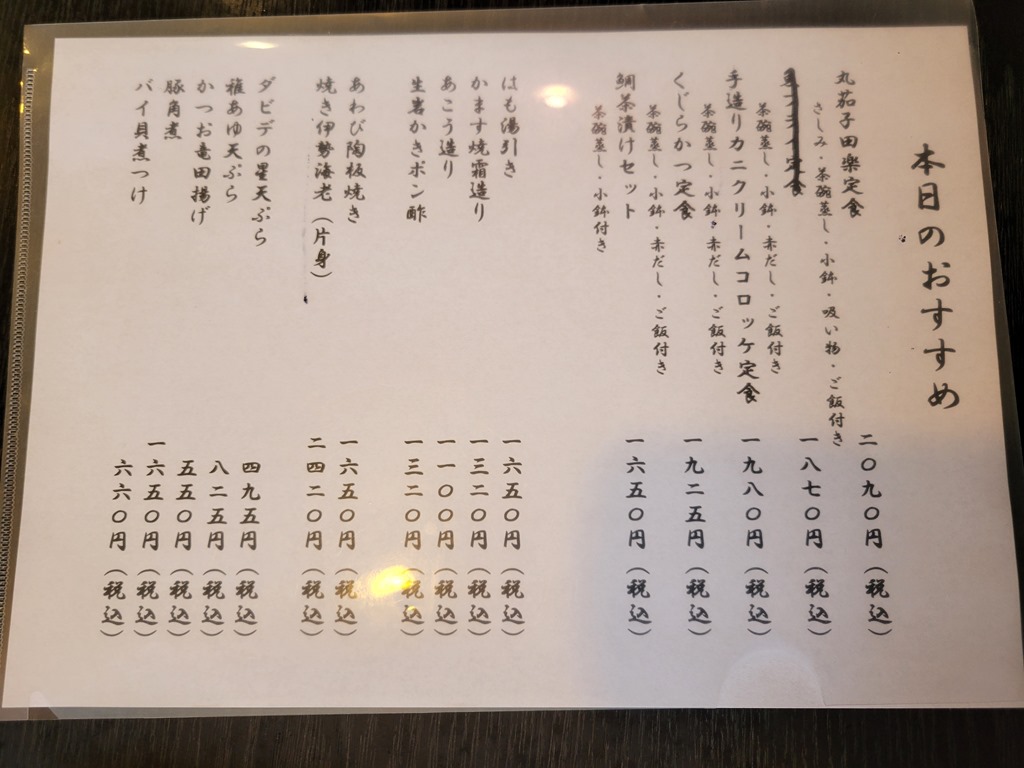 本日のおすすめ
丸茄子田楽定食 二〇九〇円（税込）
さしみ・茶碗蒸し・小鉢・吸い物・ご飯付き
定食 一八七〇円（税込）
茶碗蒸し・小鉢・赤だし・ご飯付き
手造りカニクリームコロッケ定食 一九八〇円（税込）
茶碗蒸し・小鉢・赤だし・ご飯付き
くじらかつ定食 一九二五円（税込）
茶碗蒸し・小鉢・赤だし・ご飯付き
鯛茶漬けセット 一六五〇円（税込）
茶碗蒸し・小鉢付き
はも湯引き 一六五〇円（税込）
かます焼霜造り 一三二〇円（税込）
あこう造り 一一〇〇円（税込）
生岩かきポン酢 一三二〇円（税込）
あわび陶板焼き 一六五〇円（税込）
焼き伊勢海老（片身） 二四二〇円（税込）
ダビデの星天ぷら 四九五円（税込）
稚あゆ天ぷら 八二五円（税込）
かつお竜田揚げ 五五〇円（税込）
豚角煮 一六五〇円（税込）
バイ貝煮つけ 六六〇円（税込）